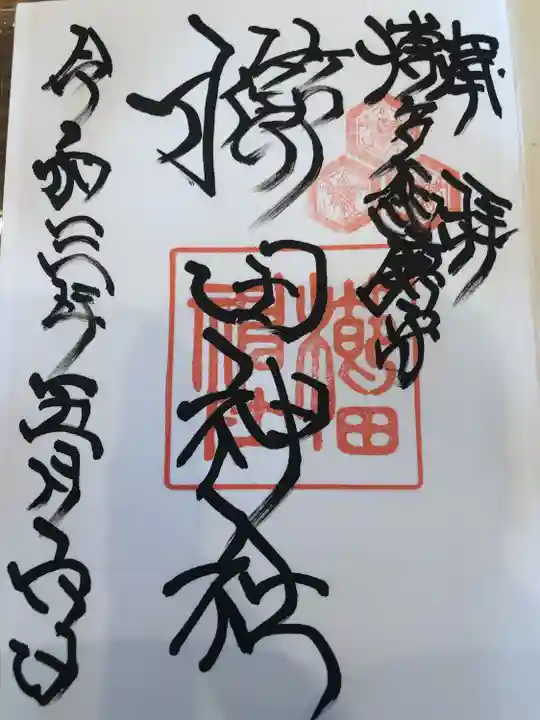 奉拝
博多總鎮守
櫛田神社
櫛田神社
令和三年五月六日